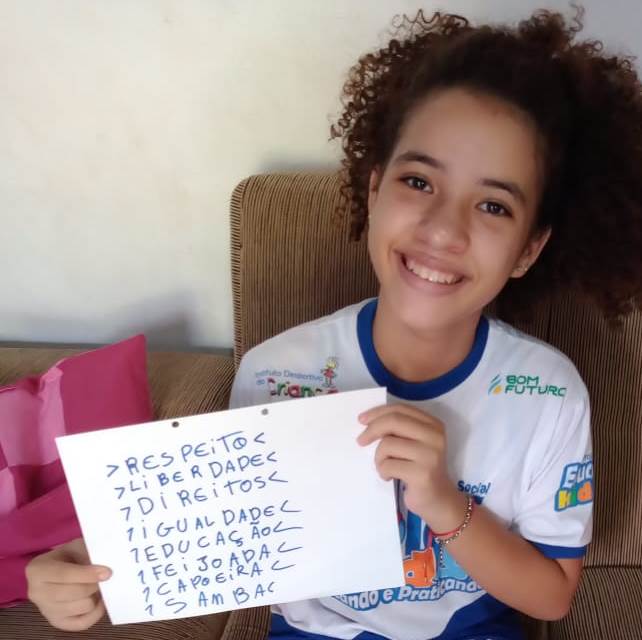 Instituto Desportivo
da Criança
BOM
FUTURO
>RESPEITO<
>LIBERDADE<
>DIREITOS<
>IGUALDADE<
>EDUCAÇÃO<
>FEIJOADA<
>CAPOEIRA<
>SAMBA<
Social